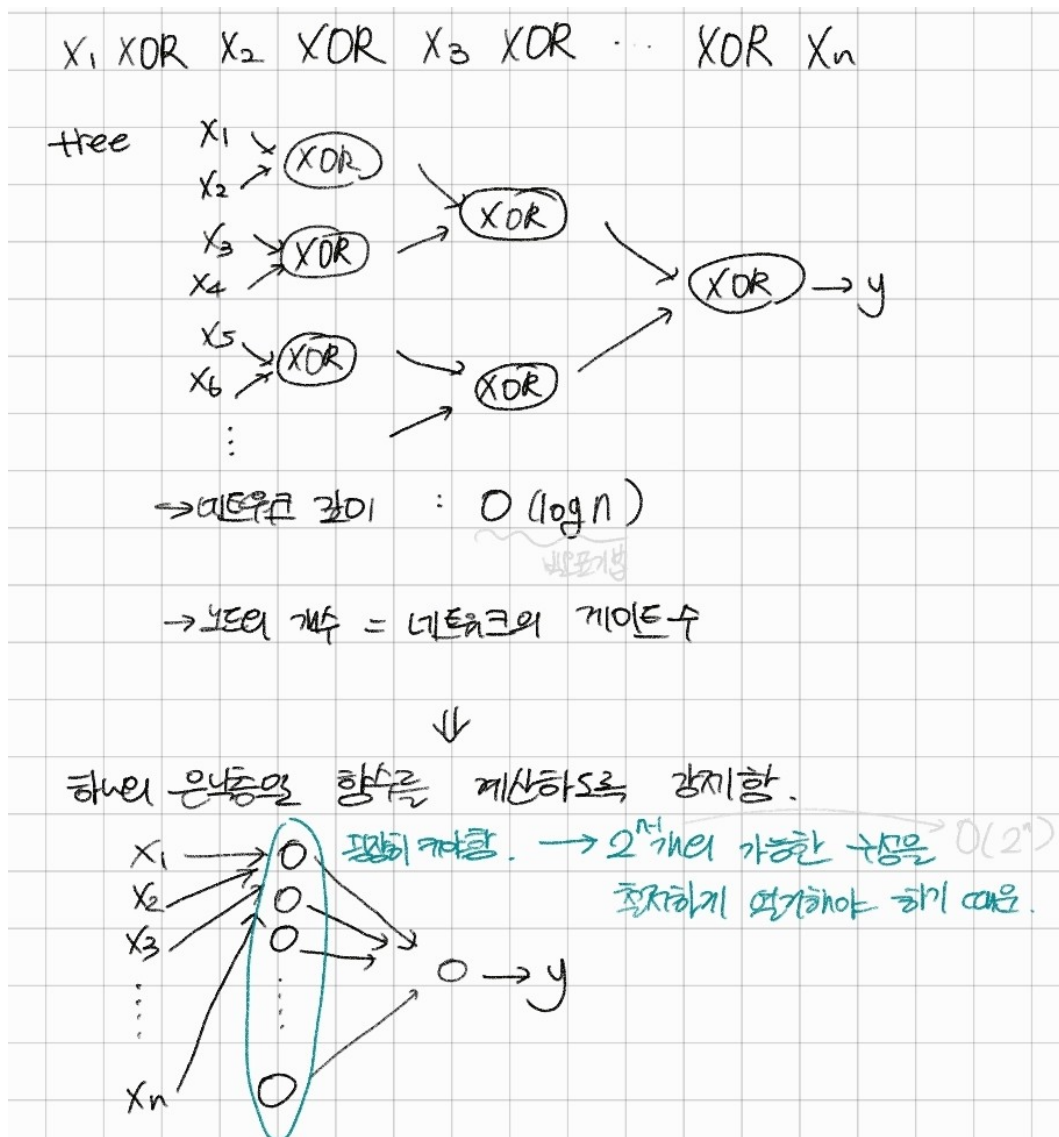 X₁ XOR X₂ XOR X₃ XOR ... XOR Xₙ
tree
X₁
X₂
XOR
X₃
X₄
XOR
X₅
X₆
XOR
⋮
XOR
XOR
XOR → y
→ 네트워크 깊이 : O (log n)
빅오표기법
→ 노드의 개수 = 네트워크의 게이트 수
⇓
하나의 은닉층으로 함수를 계산하도록 강제함.
굉장히 커야함. → 2ⁿ⁻¹개의 가능한 구성을 O(2ⁿ)
철저하게 열거해야 하기 때문.
X₁
X₂
X₃
⋮
Xₙ
O → y